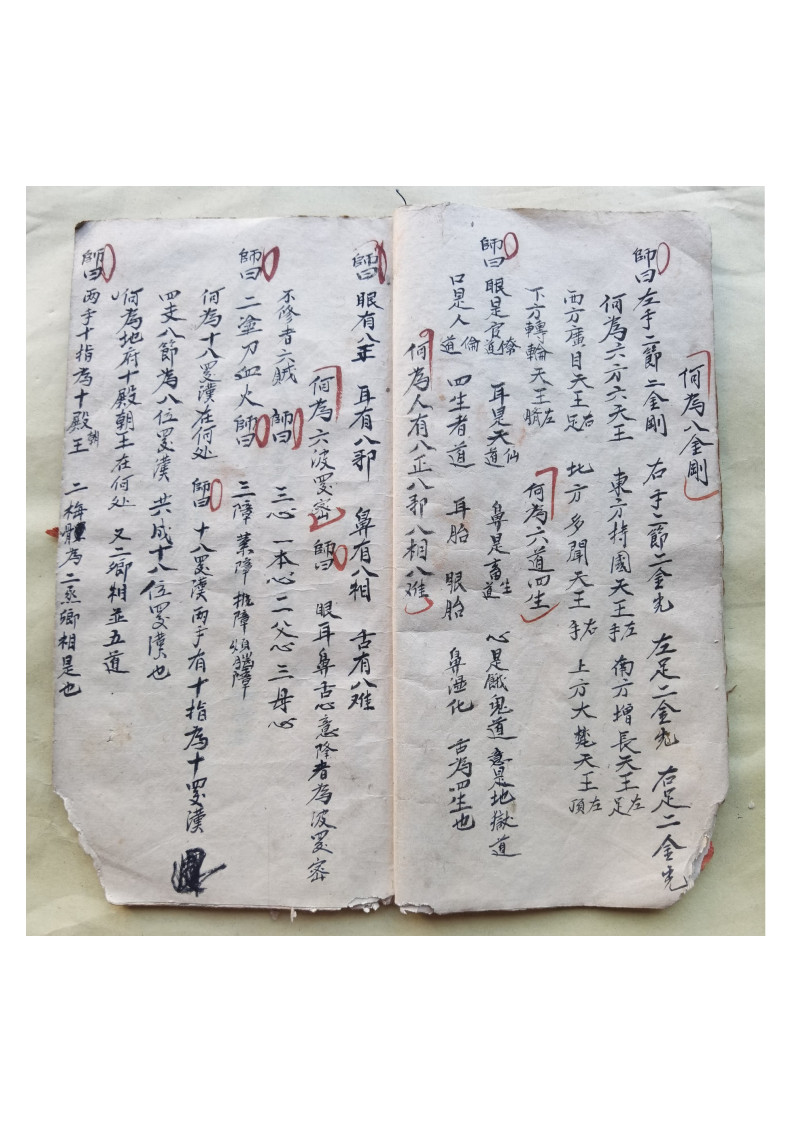 何為八金剛
師曰左手二節二金剛 右手二節二金光 左足二金光 右足二金光
何為六方六天王 東方持國天王左手 南方增長天王左足
西方廣目天王右足 北方多聞天王右手 上方大梵天王左頂
下方轉輪天王左臍
師曰眼是官僚道 耳是天仙道 鼻是畜生道 心是餓鬼道 意是地獄道
口是人倫道 何為六道四生
四生者道 耳胎 眼胎 鼻濕化 舌為四生也
何為人有八正八邪八相八难
師曰眼有八正 耳有八邪 鼻有八相 舌有八难
何為六波罗密 師曰 眼耳鼻舌心意隆者為波罗密
不修者六賊 師曰 三心 一本心二父心三母心
師曰二塗刀血火師曰 三障業障 障煩惱障
何為十八罗漢在何处 師曰 十八罗漢两手有十指為十罗漢
四支八節為八位罗漢 共成十八位罗漢也
何為地府十殿朝王在何处 又二卿相並五道
師曰两手十指為十殿朝王 二 為二丞卿相是也